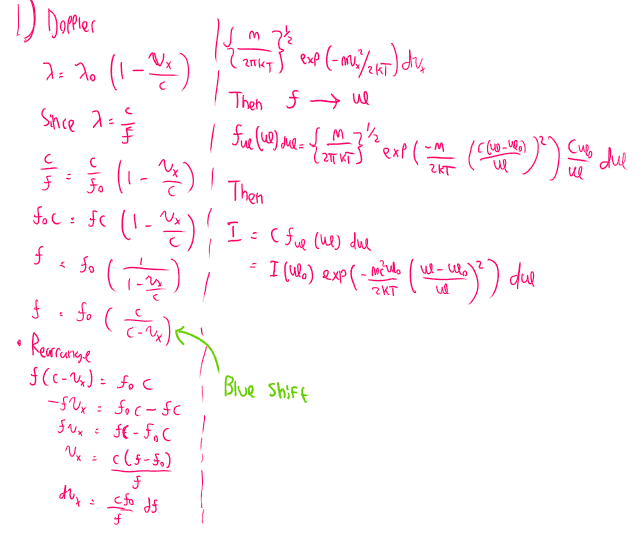 1) Doppler
λ = λ₀ (1 - vₓ/c)
Since λ = c/f
c/f = c/f₀ (1 - vₓ/c)
f₀c = fc (1 - vₓ/c)
f = f₀ (1/(1 - vₓ/c))
f = f₀ (c/(c - vₓ))
• Rearrange
f(c - vₓ) = f₀ c
-fvₓ = f₀c - fc
fvₓ = fc - f₀c
vₓ = c(f - f₀)/f
dvₓ = cf₀/f df
{m/2πkT}^½ exp(-mvₓ²/2kT) dvₓ
Then f → ω
f_ω(ω) dω = {m/2πkT}^1/2 exp(-m/2kT (c(ω-ω₀)/ω)²) cω₀/ω dω
Then
I = C f_ω (ω) dω
= I(ω₀) exp(-mc²ω₀/2kT (ω - ω₀/ω)²) dω
Blue Shift